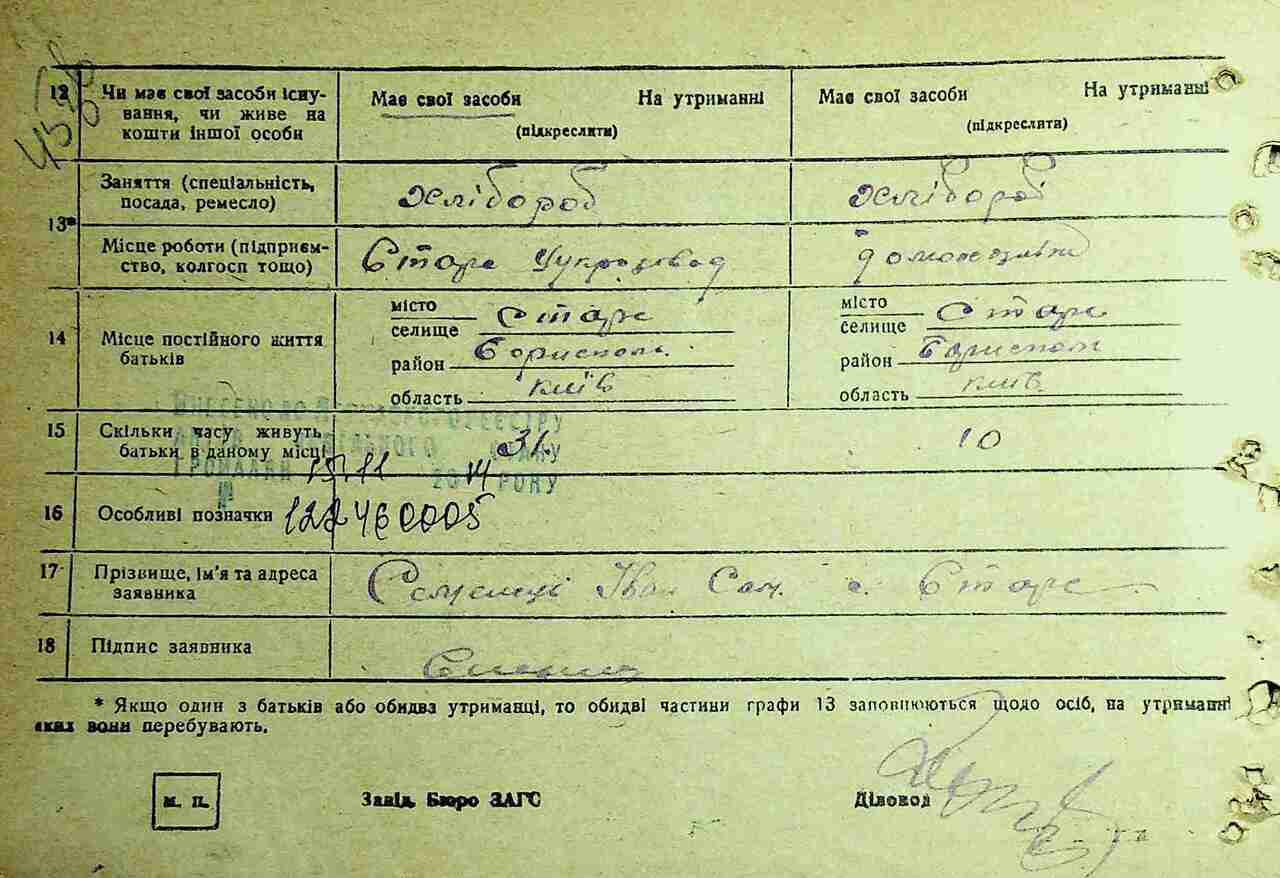 12 Чи має свої засоби існу-
вання, чи живе на
кошти іншої особи
Має свої засоби На утриманні
(підкреслити)
Має свої засоби На утриманні
(підкреслити)
13*
Заняття (спеціальність,
посада, ремесло)
Хлібороб
Хлібороб
Місце роботи (підприєм-
ство, колгосп тощо)
Старе
14 Місце постійного життя
батьків
місто
селище Старе
район Бориспол
область Київ
місто
селище Старе
район Бориспол
область Київ
15 Скільки часу живуть
батьки в даному місці
31
10
ВНЕСЕНО ДО ДЕРЖАВНОГО РЕЄСТРУ
АКТІВ ЦИВІЛЬНОГО СТАНУ
ГРОМАДЯН 15.11 20 РОКУ
№
16 Особливі позначки 122460005
17 Прізвище, ім'я та адреса
заявника
Іван Сам. с. Старе
18 Підпис заявника
* Якщо один з батьків або обидва утриманці, то обидві частини графи 13 заповнюються щодо осіб, на утриманні
яких вони перебувають.
м. п.
Завід. Бюро ЗАГС
Діловод